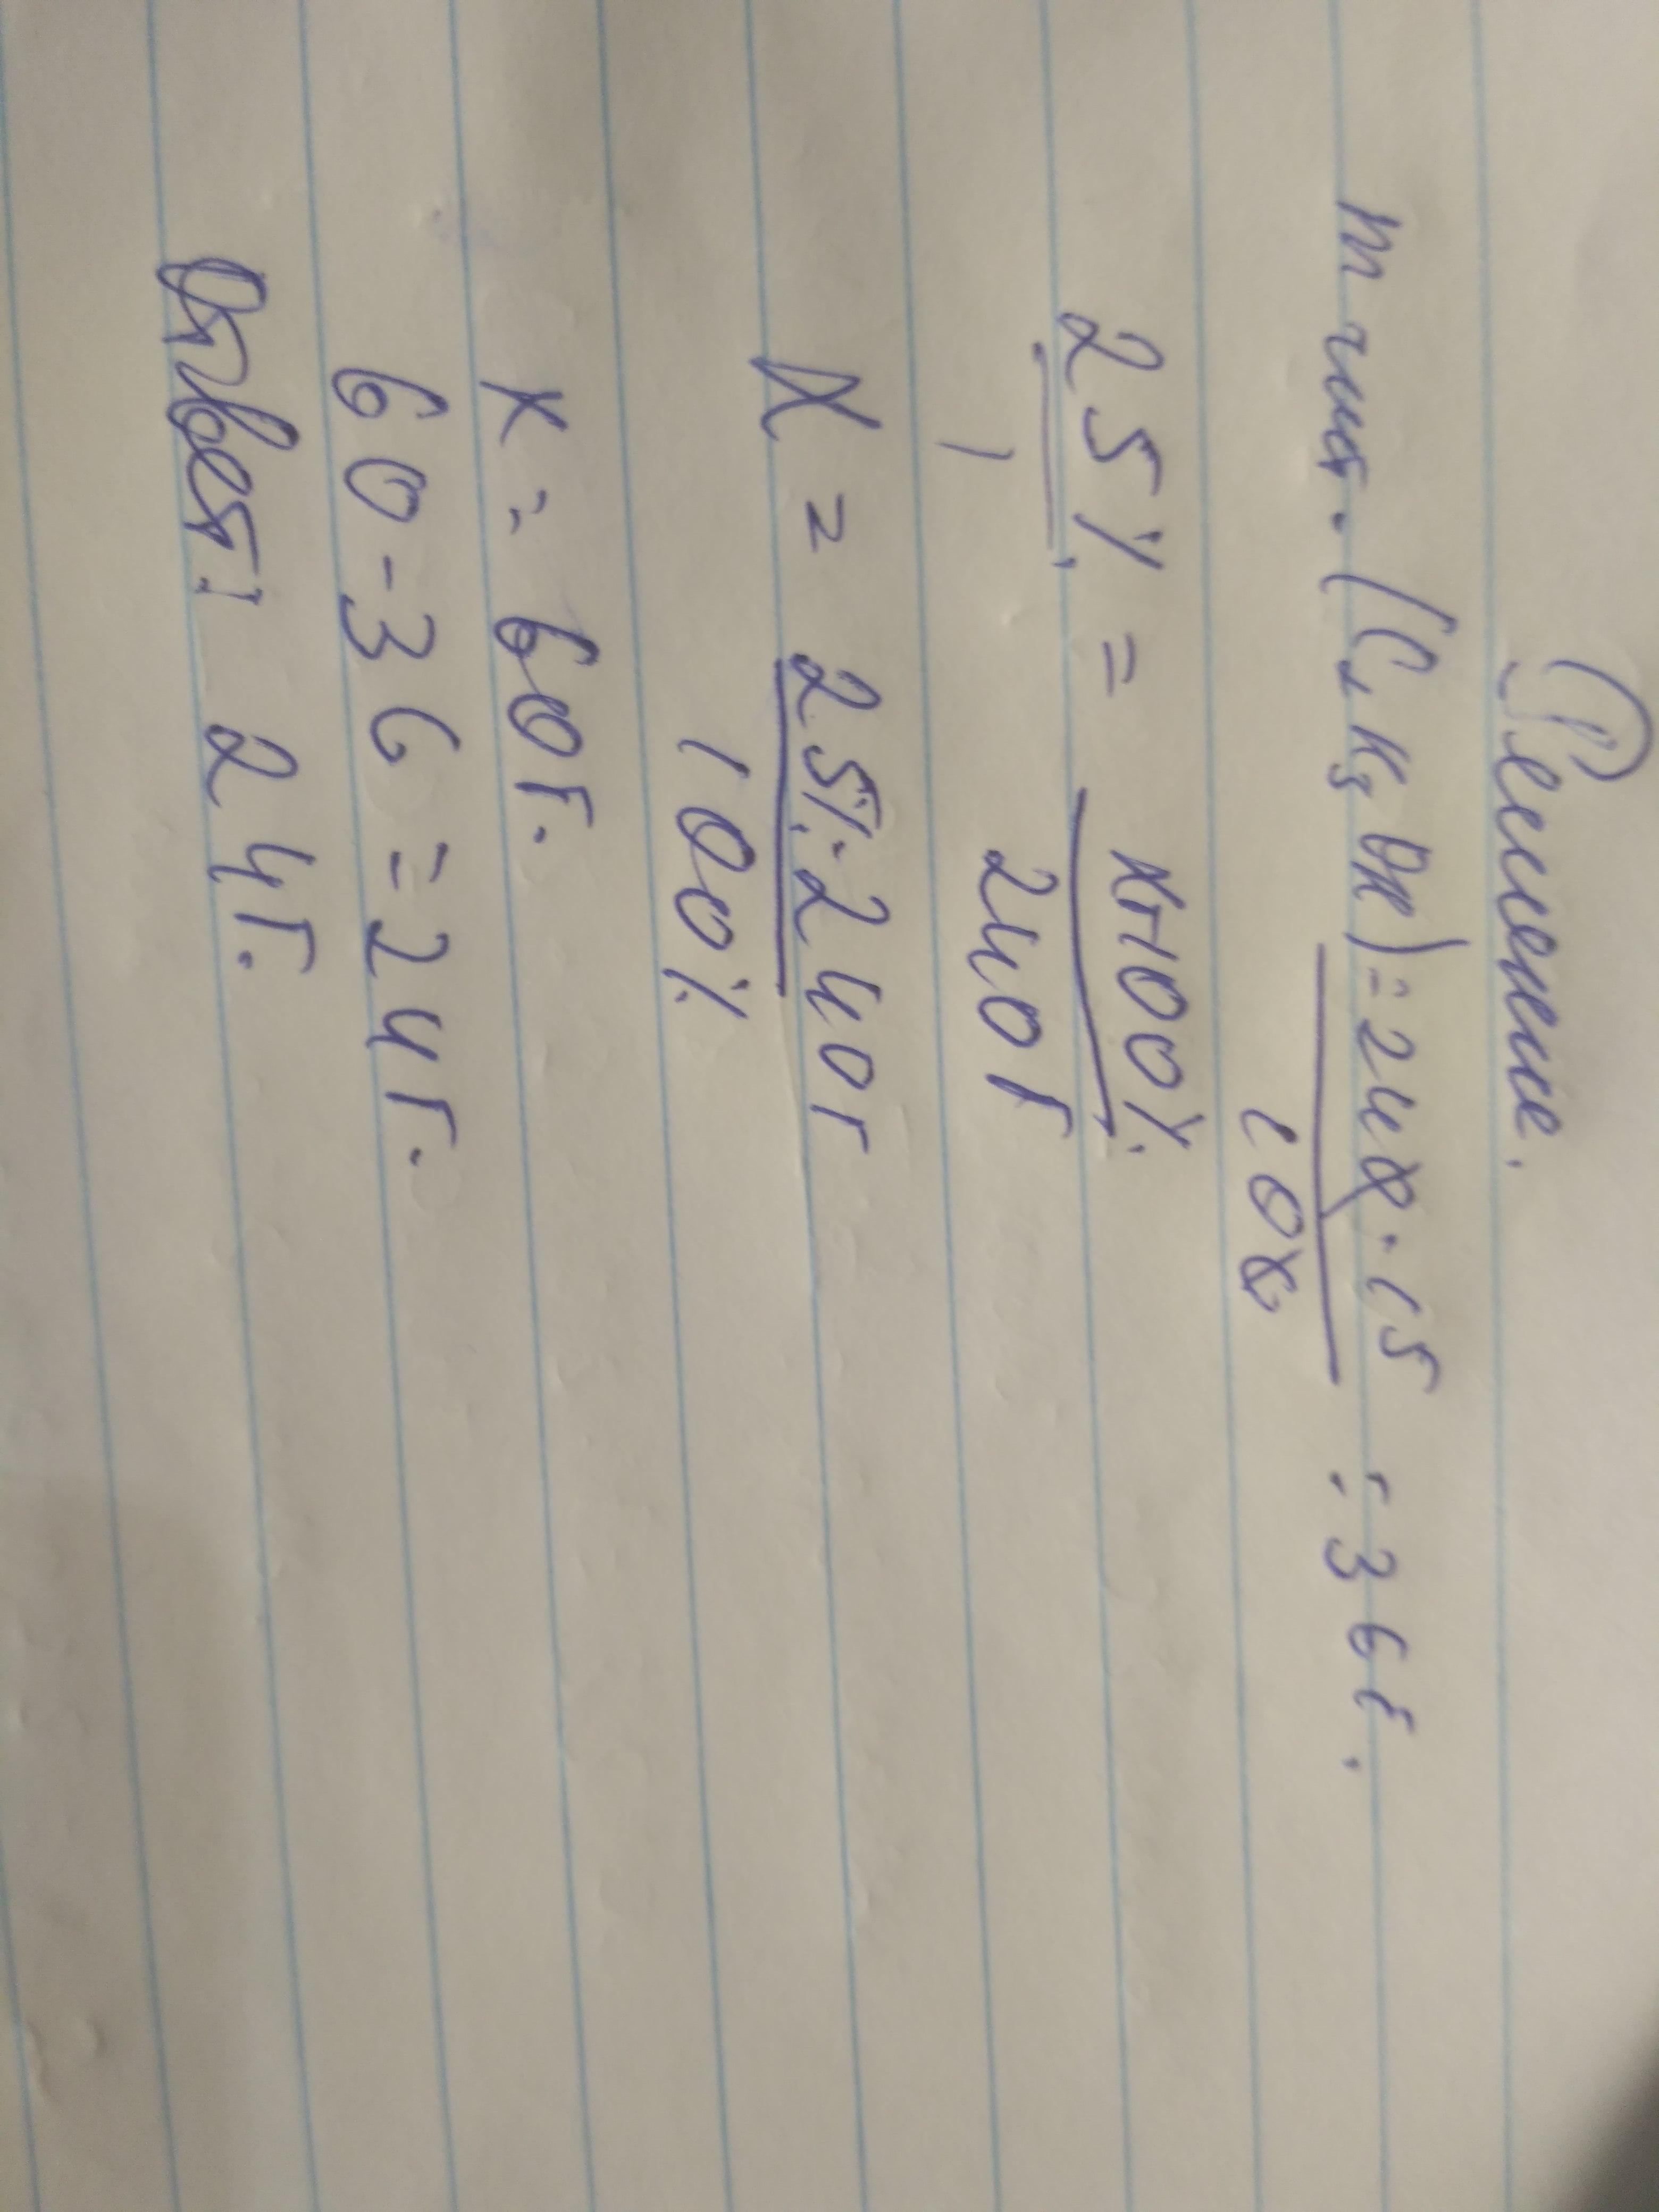 Решение.
m чист. (C₂H₅OH) = 240·15 / 100 = 36г.
25% / 1 = x·100% / 240г
X = 25%·240г / 100%
x = 60г.
60-36=24г.
Ответ: 24г.